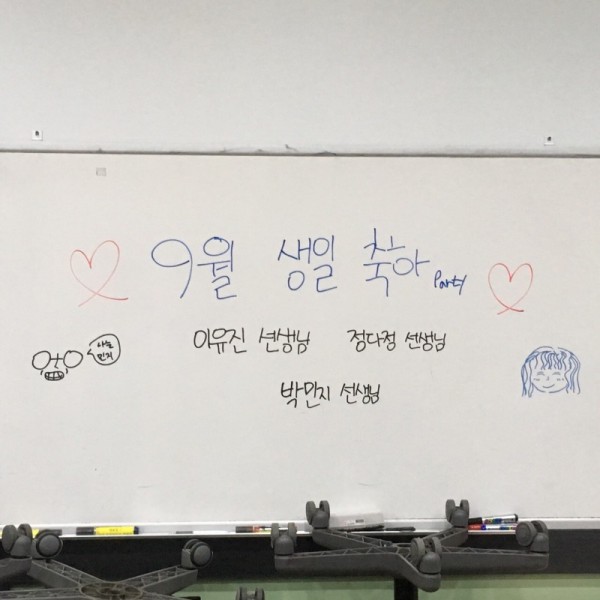 9월 생일 축하 Party
이유진 선생님 정다정 선생님
박민지 선생님
나는
민지